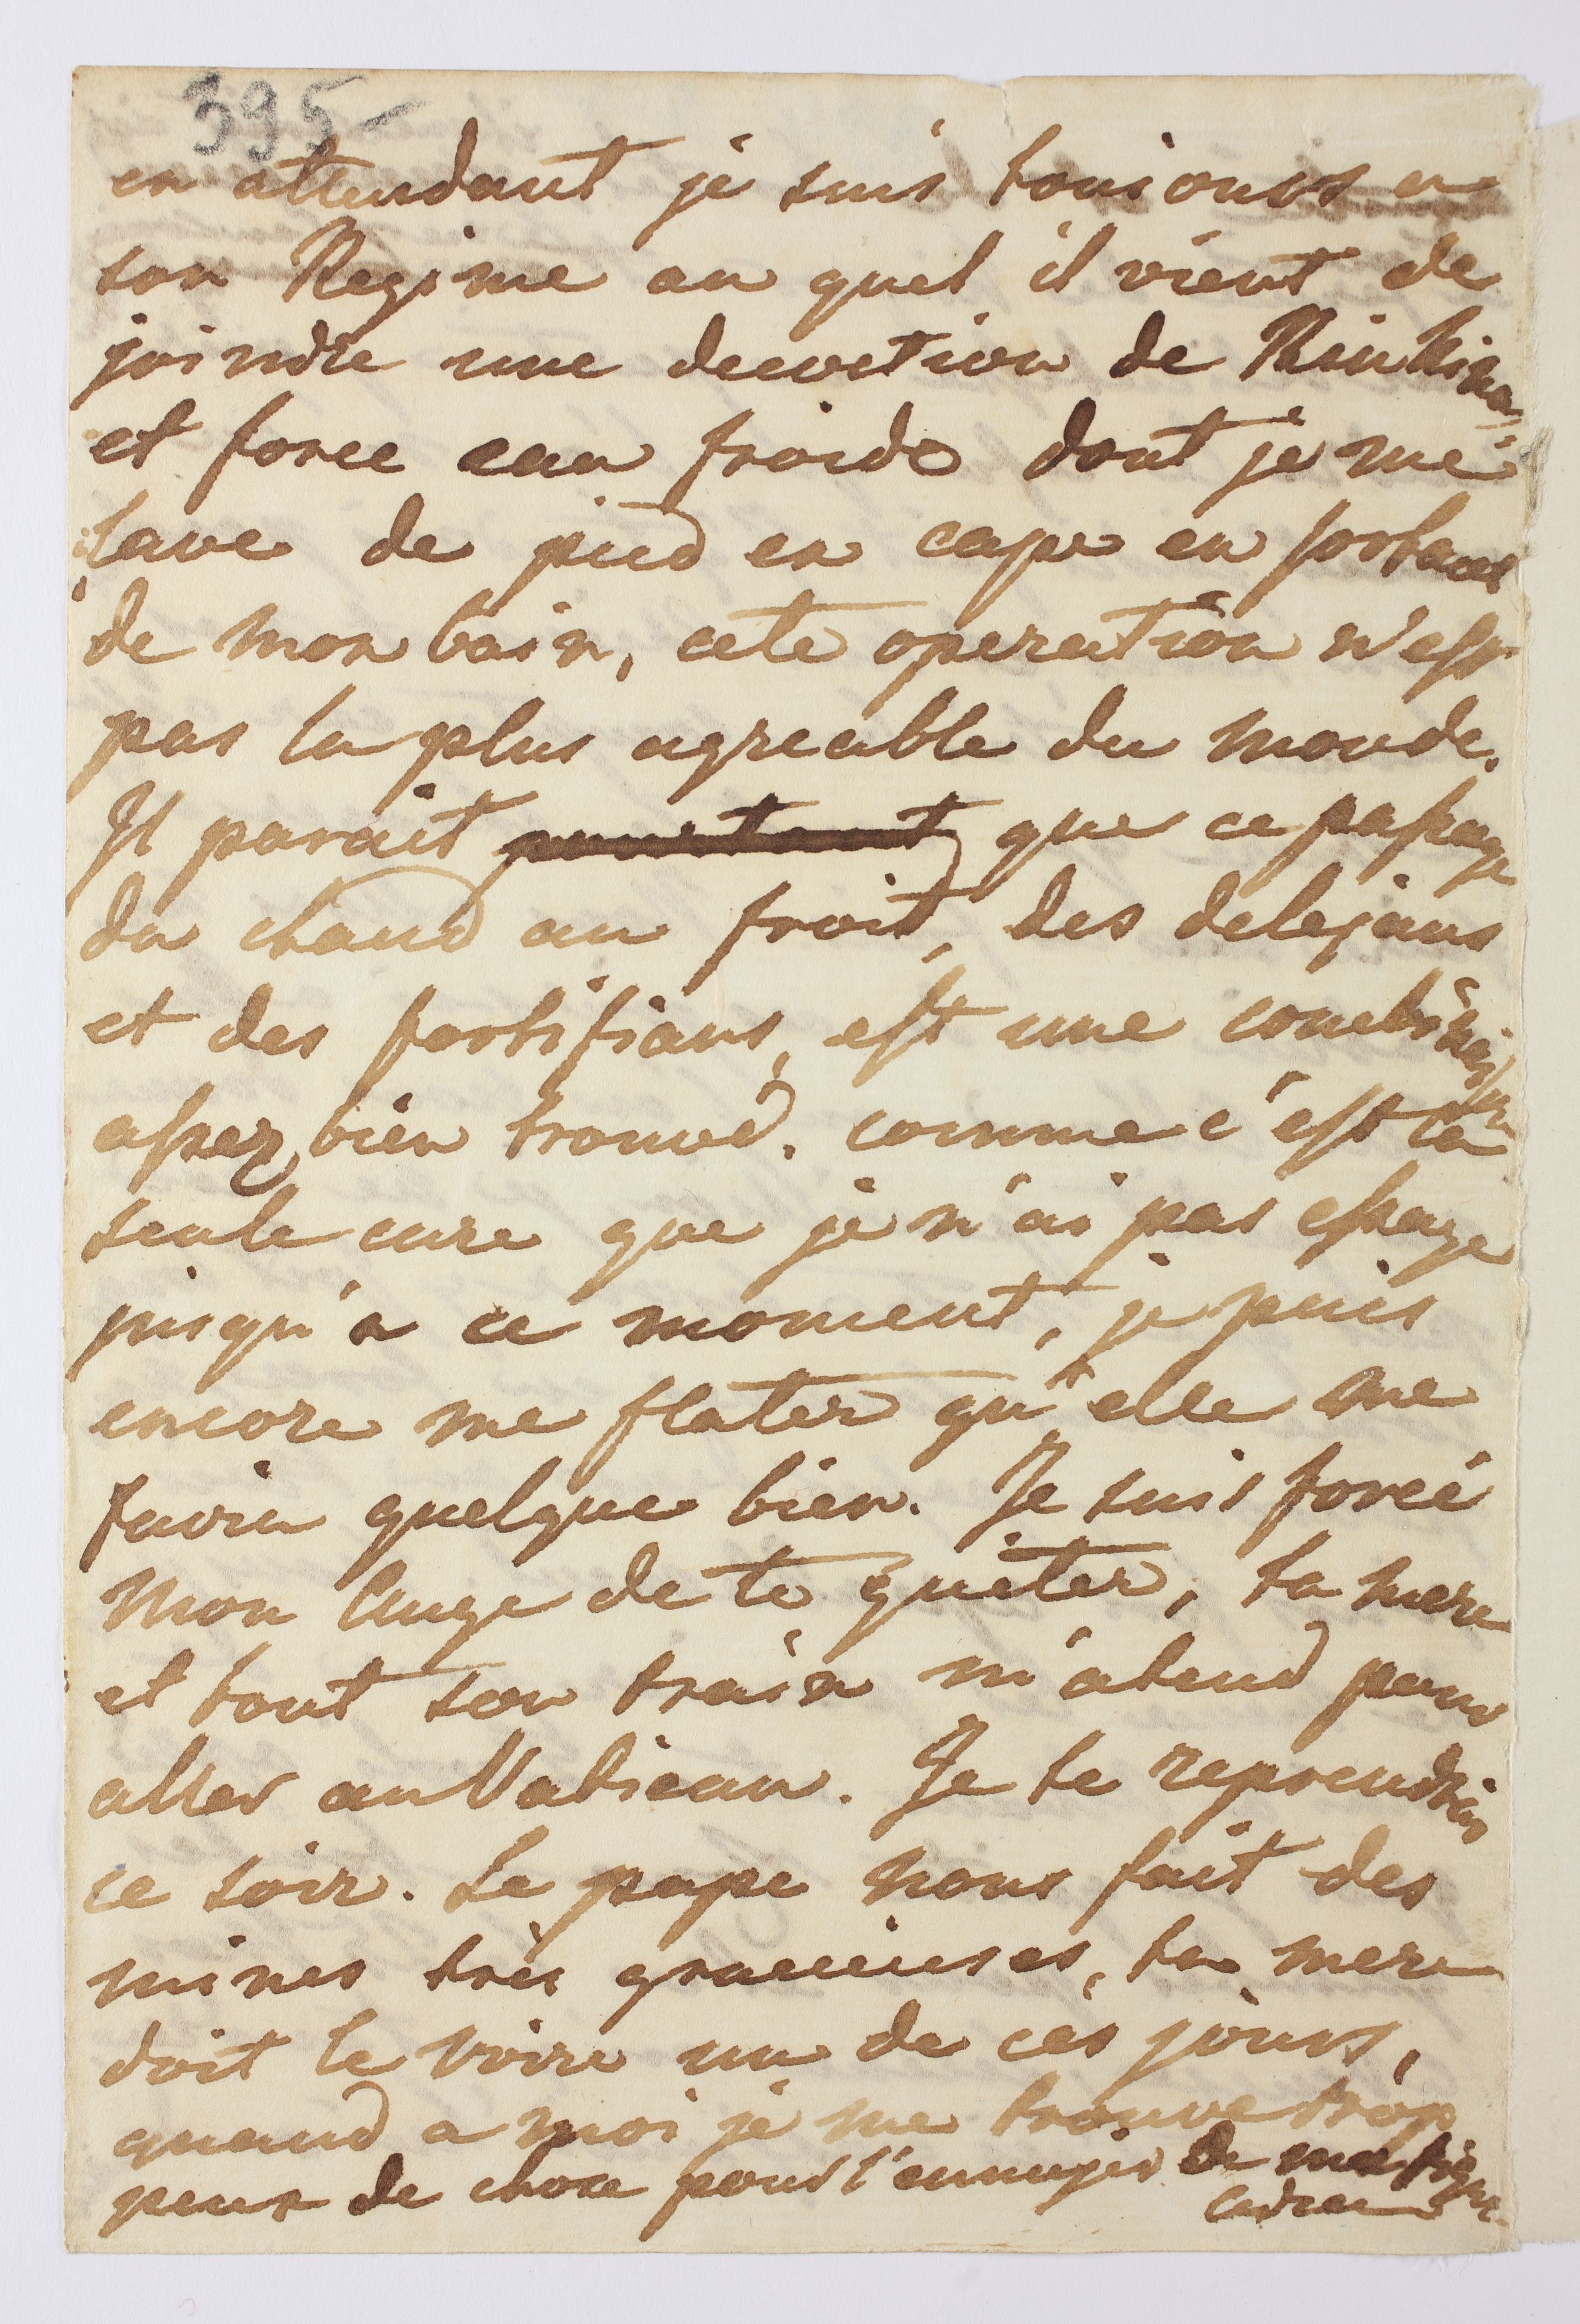 395-
en attendant je suis toujours en
son Regime au quel il vient de
joindre une decoction de Kinkina,
et force eau froide dont je me
lave de pied en cape en sortant
de mon bain, cete operation n'est
pas la plus agreable du monde.
Il parait que ce passage
du chaud au froit, des delejans
et des fortifians, est une combinaison
assez bien trouvé. comme c'est la
seule cure que je n'ai pas essaye
jusqu'a ce moment, je puis
encore me flater qu'elle me
faira quelque bien. Je suis forcé
mon Ange de te quiter, ta mere
et tout son train m'atend pour
aller au Vatican. Je te reprendrai
ce soir. Le pape nous fait des
mines très gracieuses, ta mere
doit le voire un de ces jours,
quand a moi je me trouve trop
peux de chose pour l'ennuyer de ma figure.
adieu